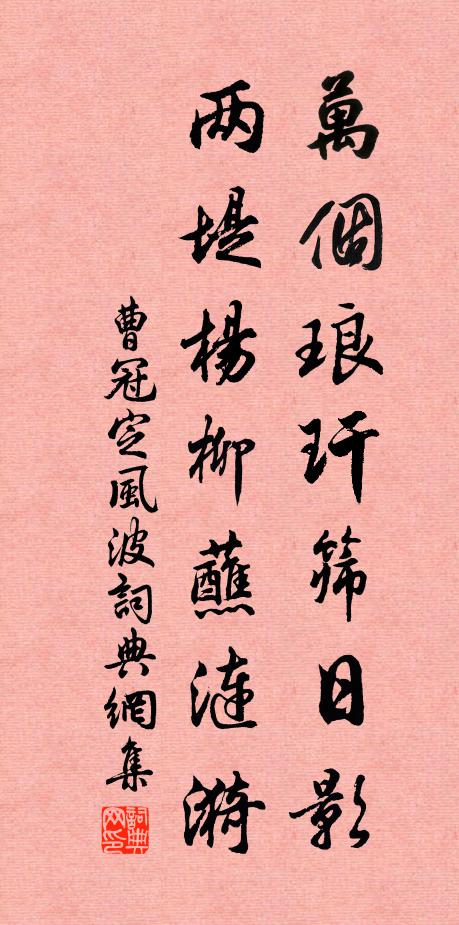 萬個琅玕篩日影
两堤楊柳蘸漣漪
曹冠定風波詞典網集
詞典网印